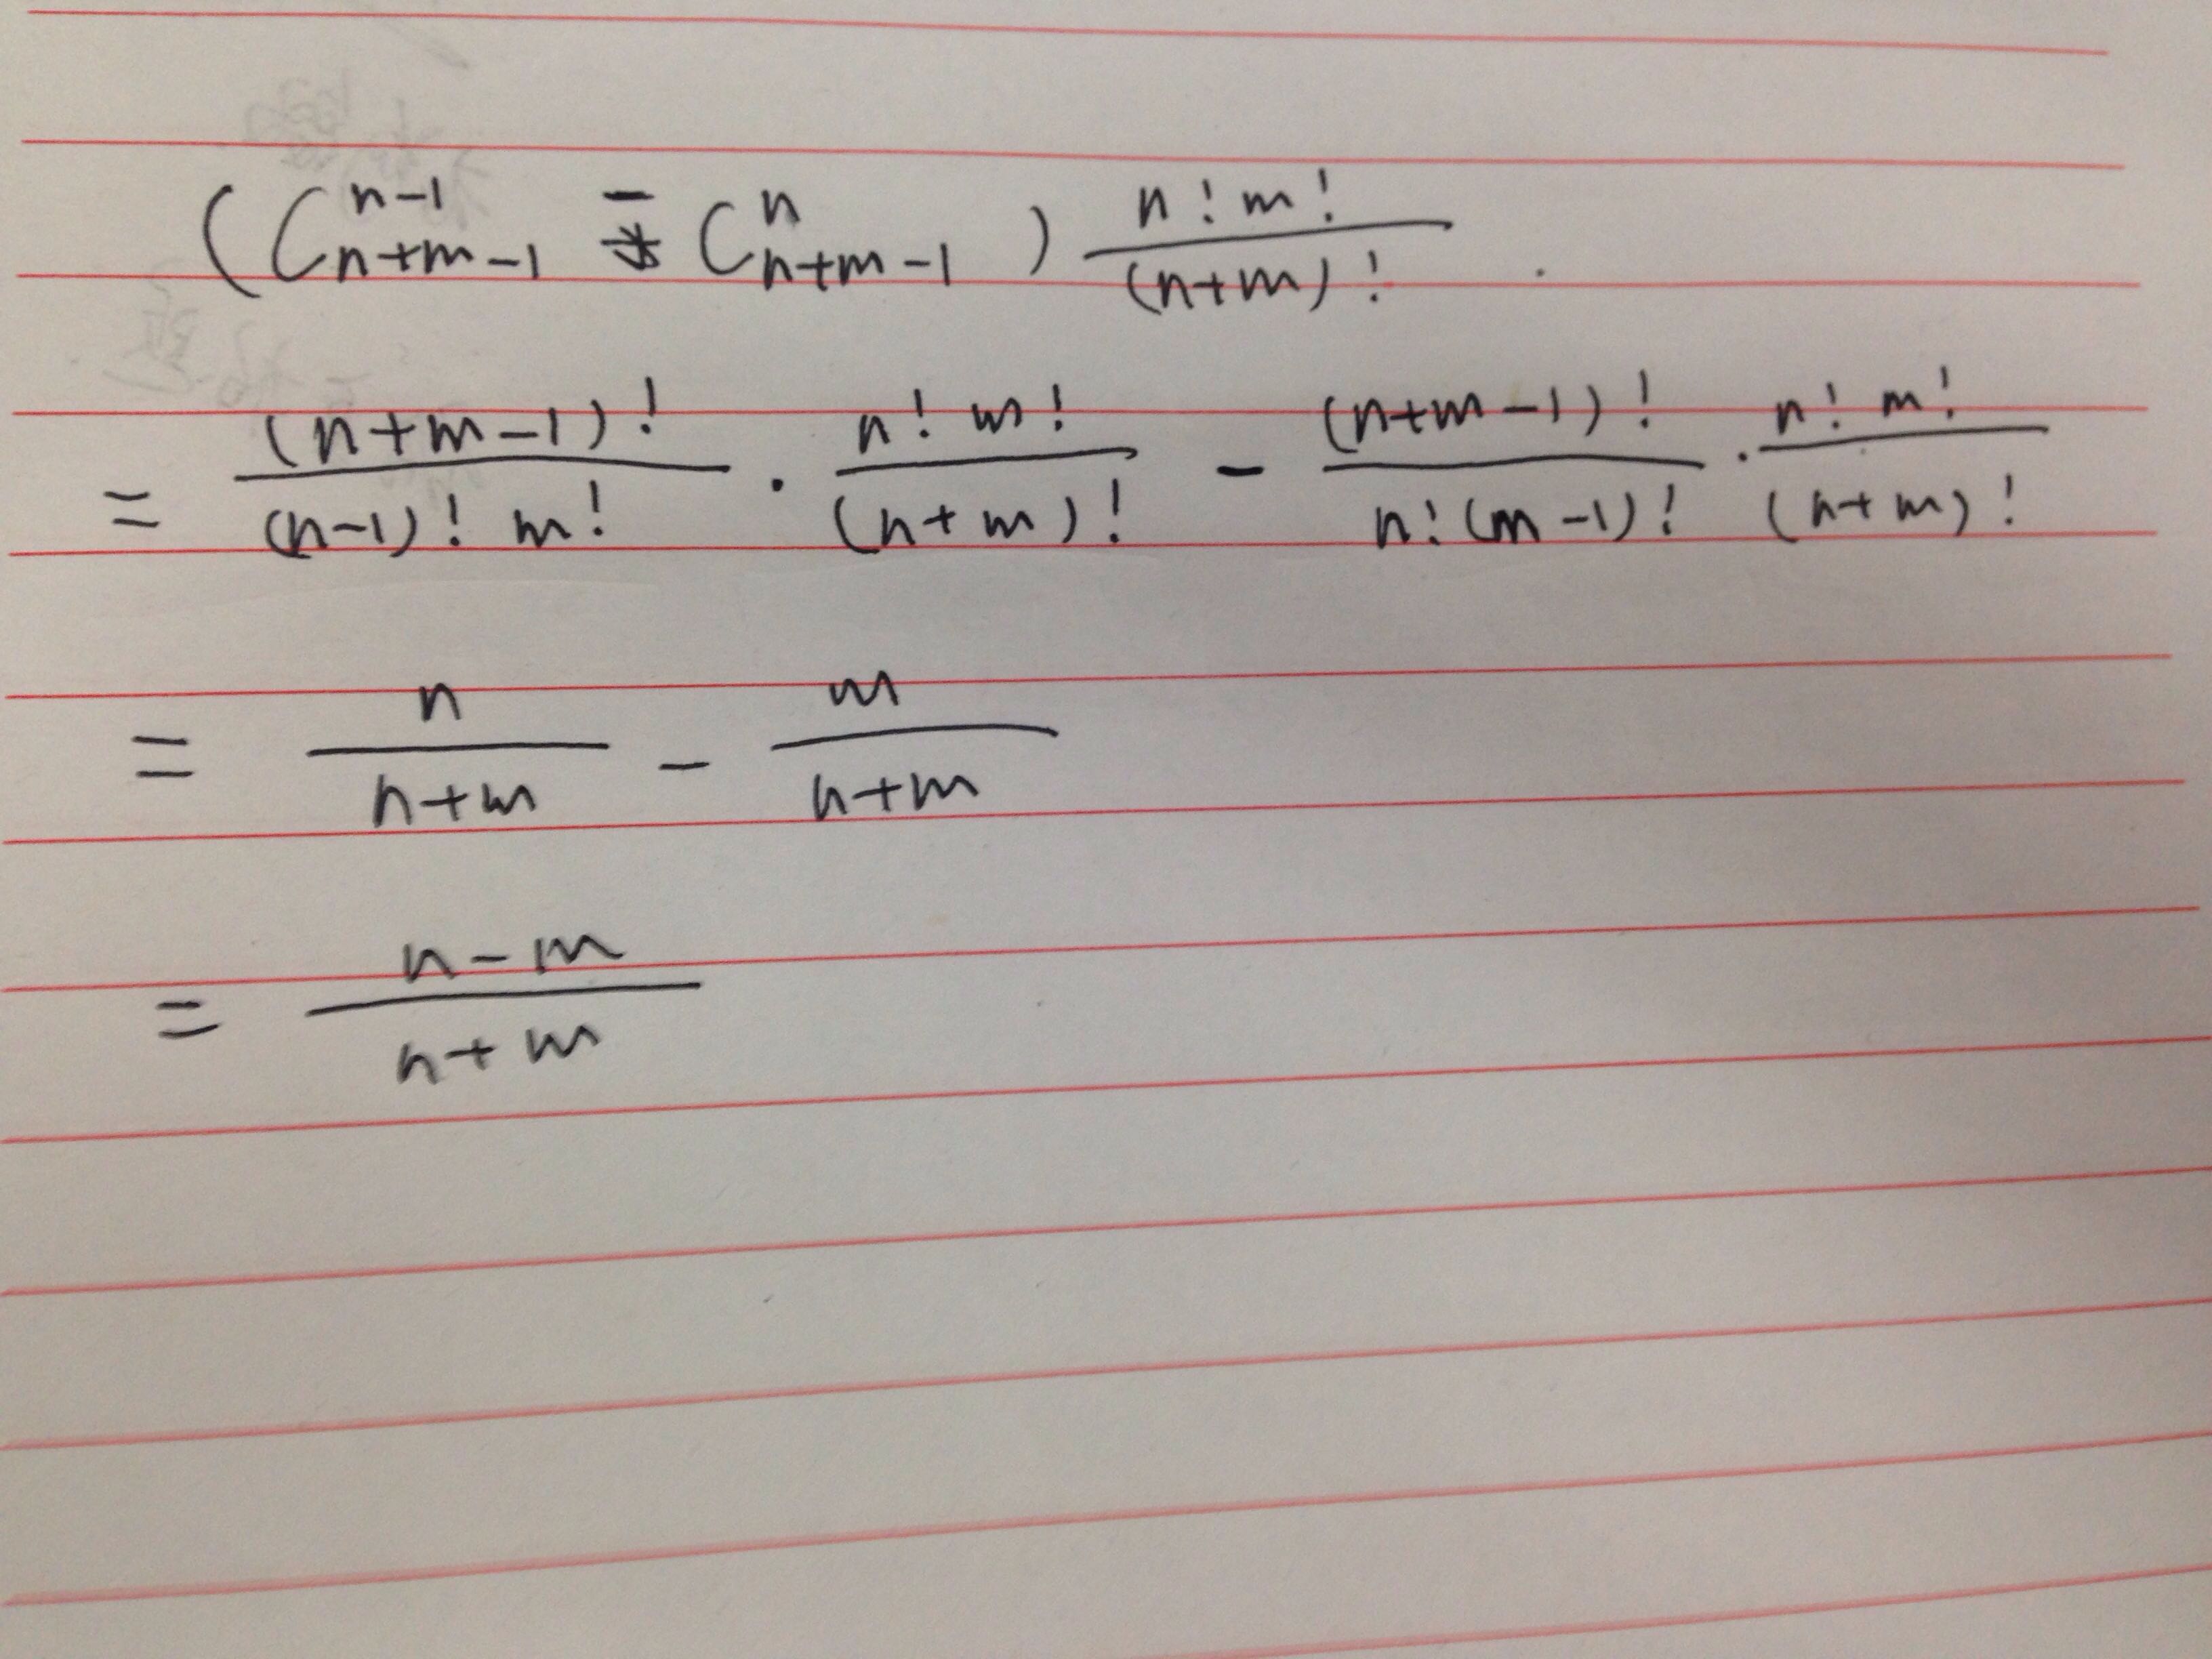 ( C_{n+m-1}^{n-1} - C_{n+m-1}^{n} ) \frac{n! m!}{(n+m)!}
= \frac{(n+m-1)!}{(n-1)! m!} · \frac{n! m!}{(n+m)!} - \frac{(n+m-1)!}{n! (m-1)!} · \frac{n! m!}{(n+m)!}
= \frac{n}{n+m} - \frac{m}{n+m}
= \frac{n-m}{n+m}